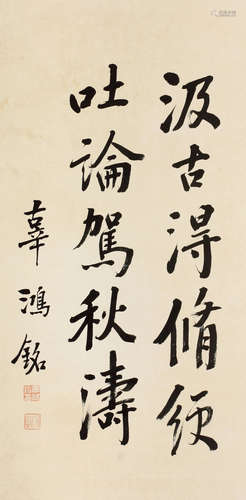 汲古得脩綆
吐論駕秋濤
辜鴻銘